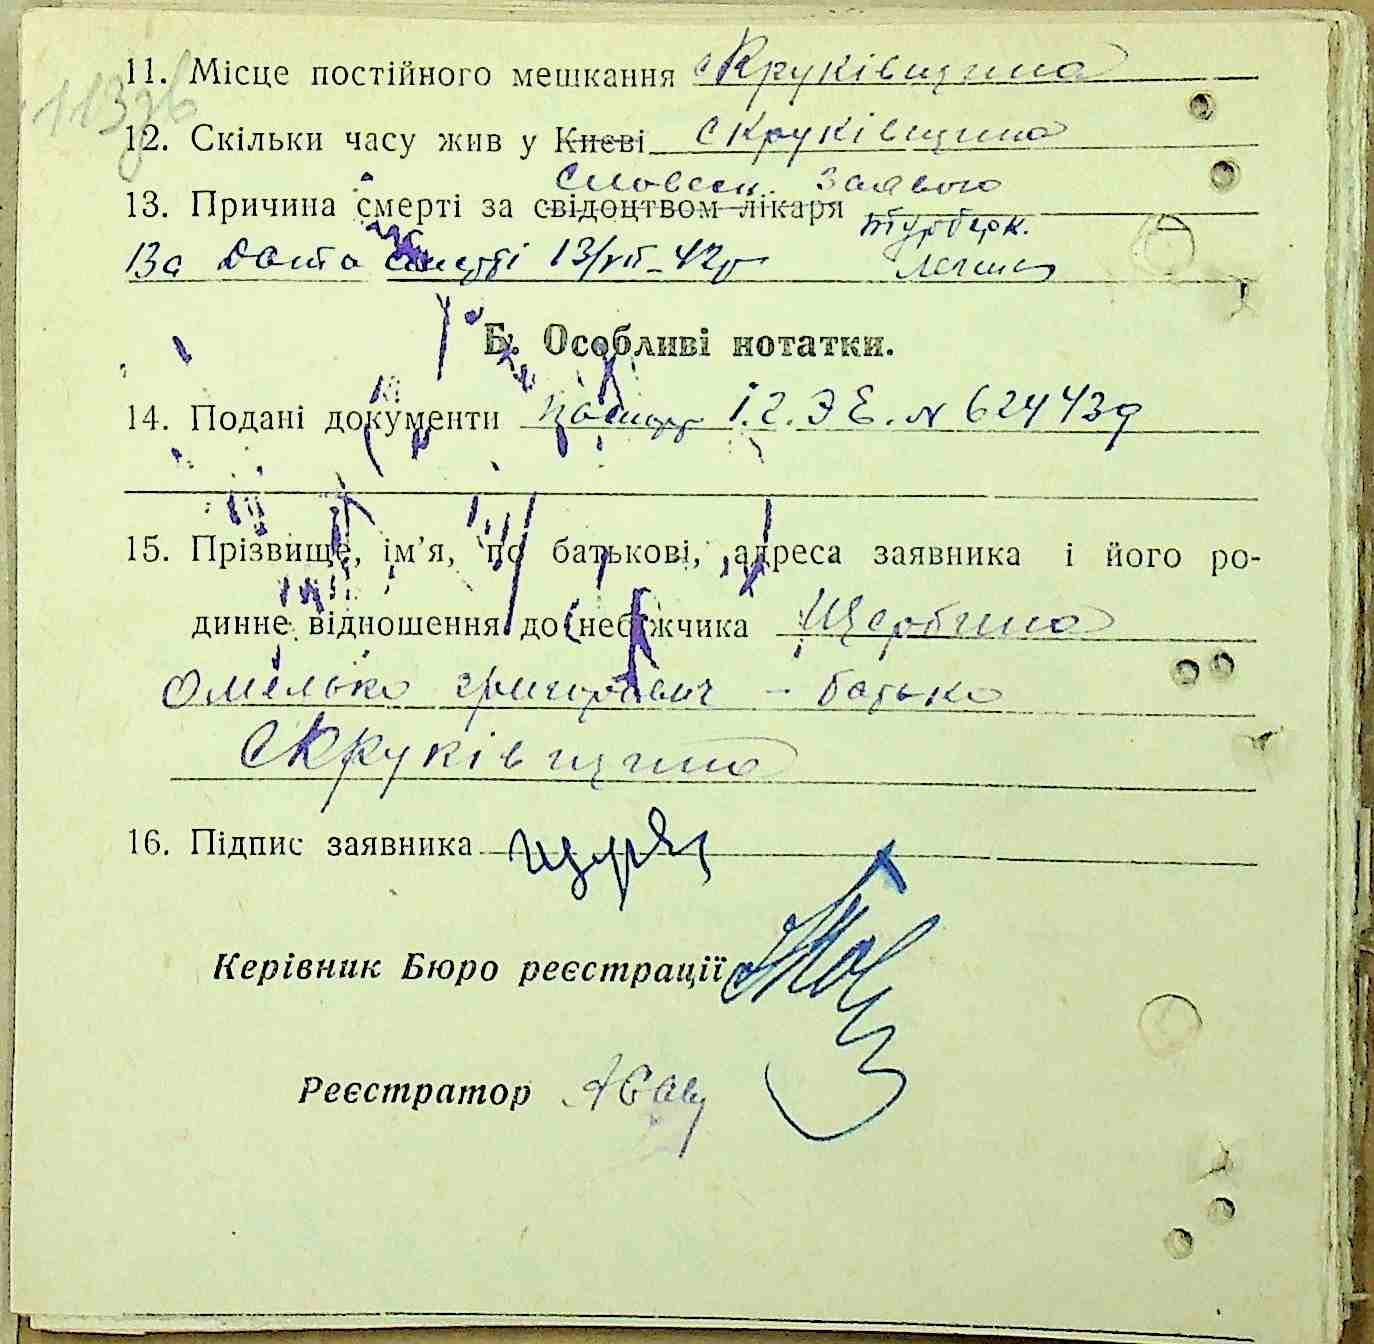 11. Місце постійного мешкання с Круківщина
12. Скільки часу жив у Києві с Круківщина
Словесн. заявою
13. Причина смерті за свідоцтвом лікаря туберк.
13а Дата смерті 13/VII-42р легень
Б. Особливі нотатки.
14. Подані документи паспорт І.2.ЭЕ.N 624439
15. Прізвище, ім’я, по батькові, адреса заявника і його ро-
динне відношення до небіжчика Щербина
Омелько Григорович - батько
с Круківщина
16. Підпис заявника
Керівник Бюро реєстрації
Реєстратор